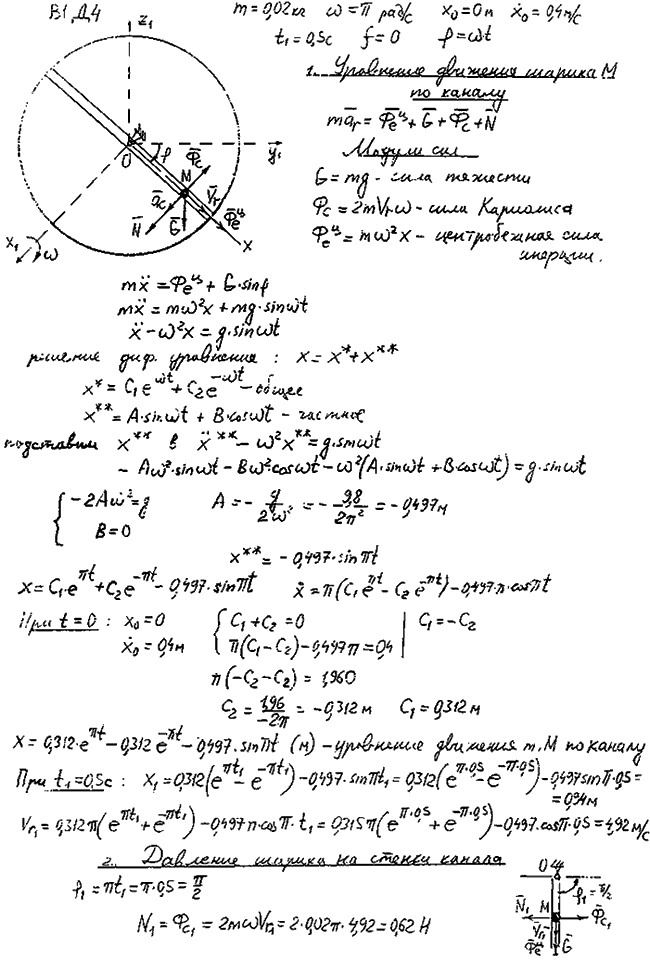 В1, Д4
m = 0,02 кг ω = π рад/с x₀ = 0 м ẋ₀ = 0,4 м/с
t₁ = 0,5с f = 0 φ = ωt
z₁
O
φ
y₁
Φ̄c
M
āc
V̄r
N̄
Ḡ
Φ̄eᵘ
x
x₁
ω
1. Уравнение движения шарика М
по каналу
mār = Φ̄eᵘ + Ḡ + Φ̄c + N̄
Модули сил
G = mg - сила тяжести
Φc = 2mVrω - сила Кариолиса
Φeᵘ = mω²x - центробежная сила
инерции.
mẍ = Φeᵘ + G·sinφ
mẍ = mω²x + mg·sinωt
ẍ - ω²x = g·sinωt
решение диф. уравнения : x = x* + x**
x* = C₁e^ωt + C₂e^-ωt - общее
x** = A·sinωt + B·cosωt - частное
подставим x** в ẍ** - ω²x** = g·sinωt
- Aω²·sinωt - Bω²cosωt - ω²(A·sinωt + B·cosωt) = g·sinωt
{ -2Aω² = g A = - g/2ω² = - 9,8/2π² = - 0,497 м
B = 0
x** = - 0,497·sinπt
x = C₁·e^πt + C₂e^-πt - 0,497·sinπt ẋ = π(C₁e^πt - C₂e^-πt) - 0,497·π·cosπt
При t = 0 : x₀ = 0 { C₁ + C₂ = 0 | C₁ = - C₂
ẋ₀ = 0,4 м π(C₁ - C₂) - 0,497π = 0,4
π(-C₂ - C₂) = 1,960
C₂ = 1,96/-2π = - 0,312 м C₁ = 0,312 м
x = 0,312·e^πt - 0,312e^-πt - 0,497·sinπt (м) - уровнение движения т. М по каналу
При t₁ = 0,5с : x₁ = 0,312(e^πt₁ - e^-πt₁) - 0,497·sinπt₁ = 0,312(e^π·0,5 - e^-π·0,5) - 0,497sinπ·0,5 =
= 0,94 м
Vr₁ = 0,312π(e^πt₁ + e^-πt₁) - 0,497π·cosπ·t₁ = 0,315π(e^π·0,5 + e^-π·0,5) - 0,497·cosπ·0,5 = 4,92 м/с
2. Давление шарика на стенки канала
φ₁ = πt₁ = π·0,5 = π/2
N₁ = Φc₁ = 2mωVr₁ = 2·0,02π·4,92 = 0,62 Н
O
φ₁ = π/2
N̄₁ M Φ̄c₁
V̄r₁
Φ̄eᵘ Ḡ